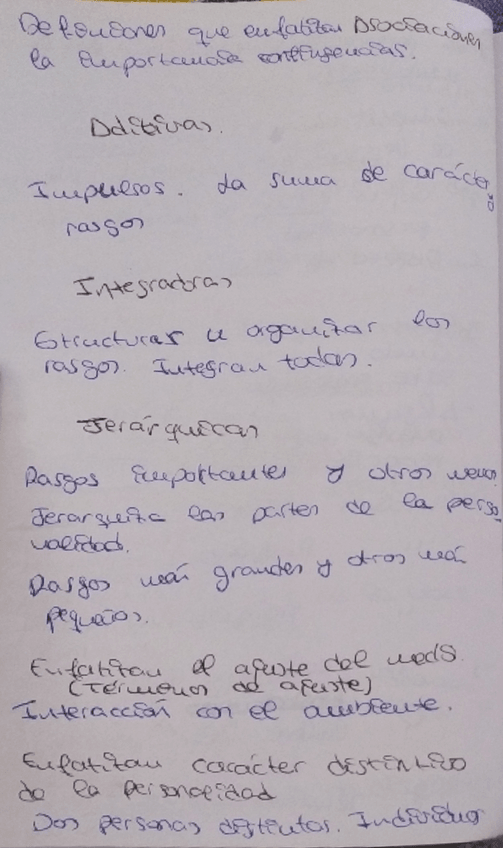 Definiciones que enfatizan Asociaciones
la importancia contingencias.
Aditivas.
Impulsos. La suma de carácter y
rasgos
Integradoras
Estructuras u organizar los
rasgos. Integran todas.
Jerárquicas
Rasgos importantes y otros menos
Jerarquiza las partes de la perso
nalidad.
Rasgos más grandes y otros más
pequeños.
Enfatizan el ajuste del medio.
(Términos de ajuste)
Interacción con el ambiente.
Enfatizan carácter distintivo
de la personalidad
Dos personas distintas. Individuos